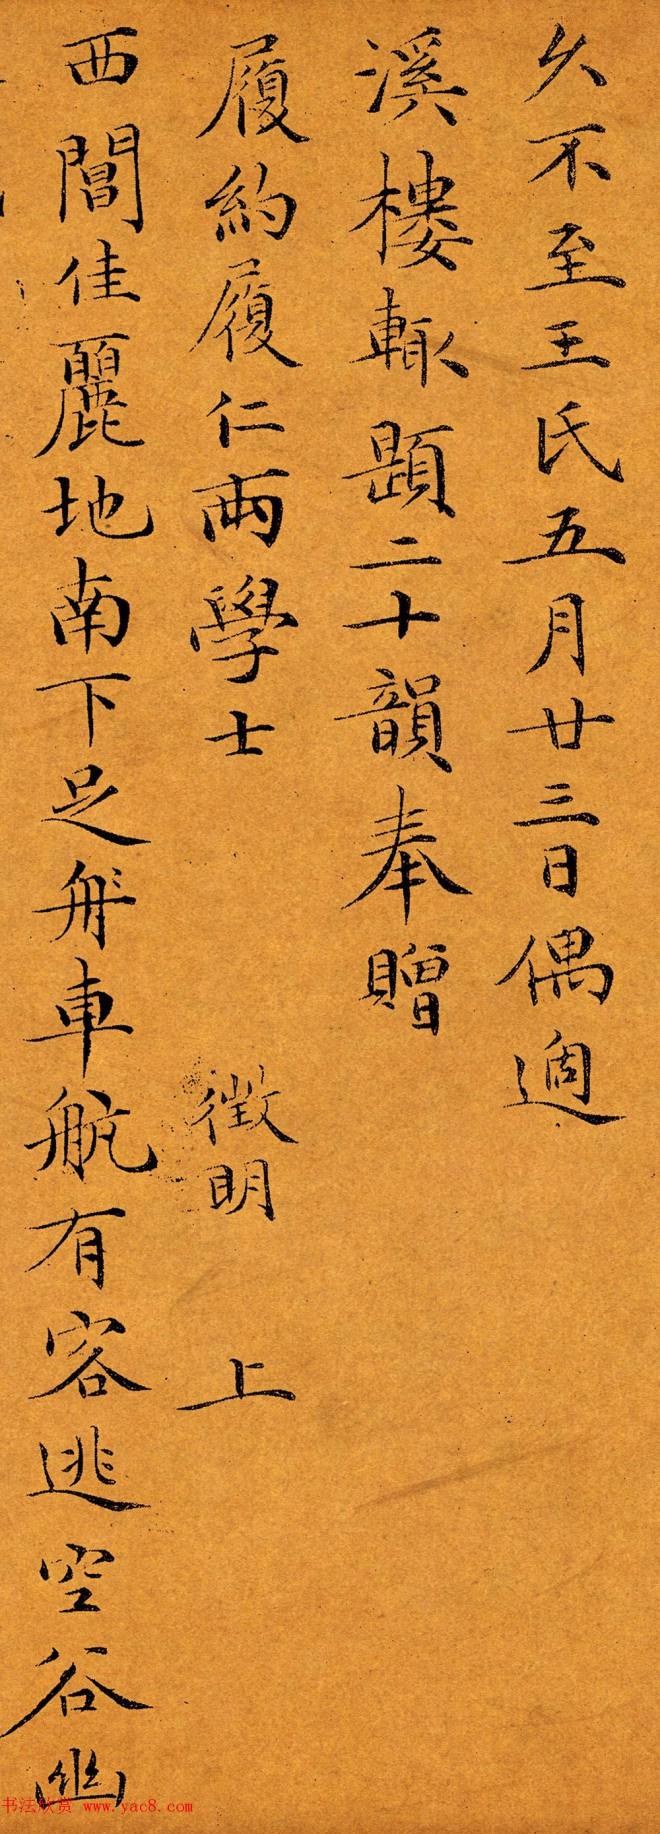 久不至王氏五月廿三日偶過
溪樓輒題二十韻奉贈
履約履仁兩學士 徵明 上
西閶佳麗地南下足舟車航有客逃空谷幽
书法欣赏 www.yac8.com